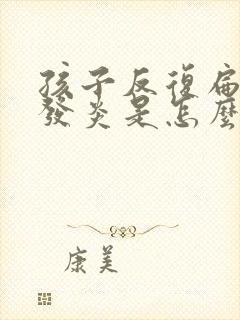 孩子反復扁
發炎是怎麼
康美